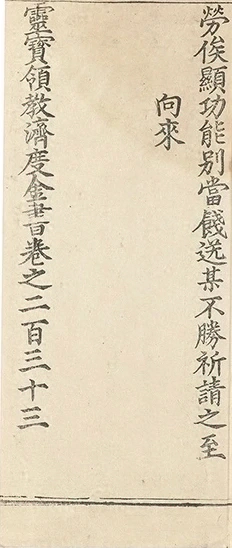 勞俟顯功能別當餞送某不勝祈請之至
向來
靈寶領教濟度金書卷之二百三十三